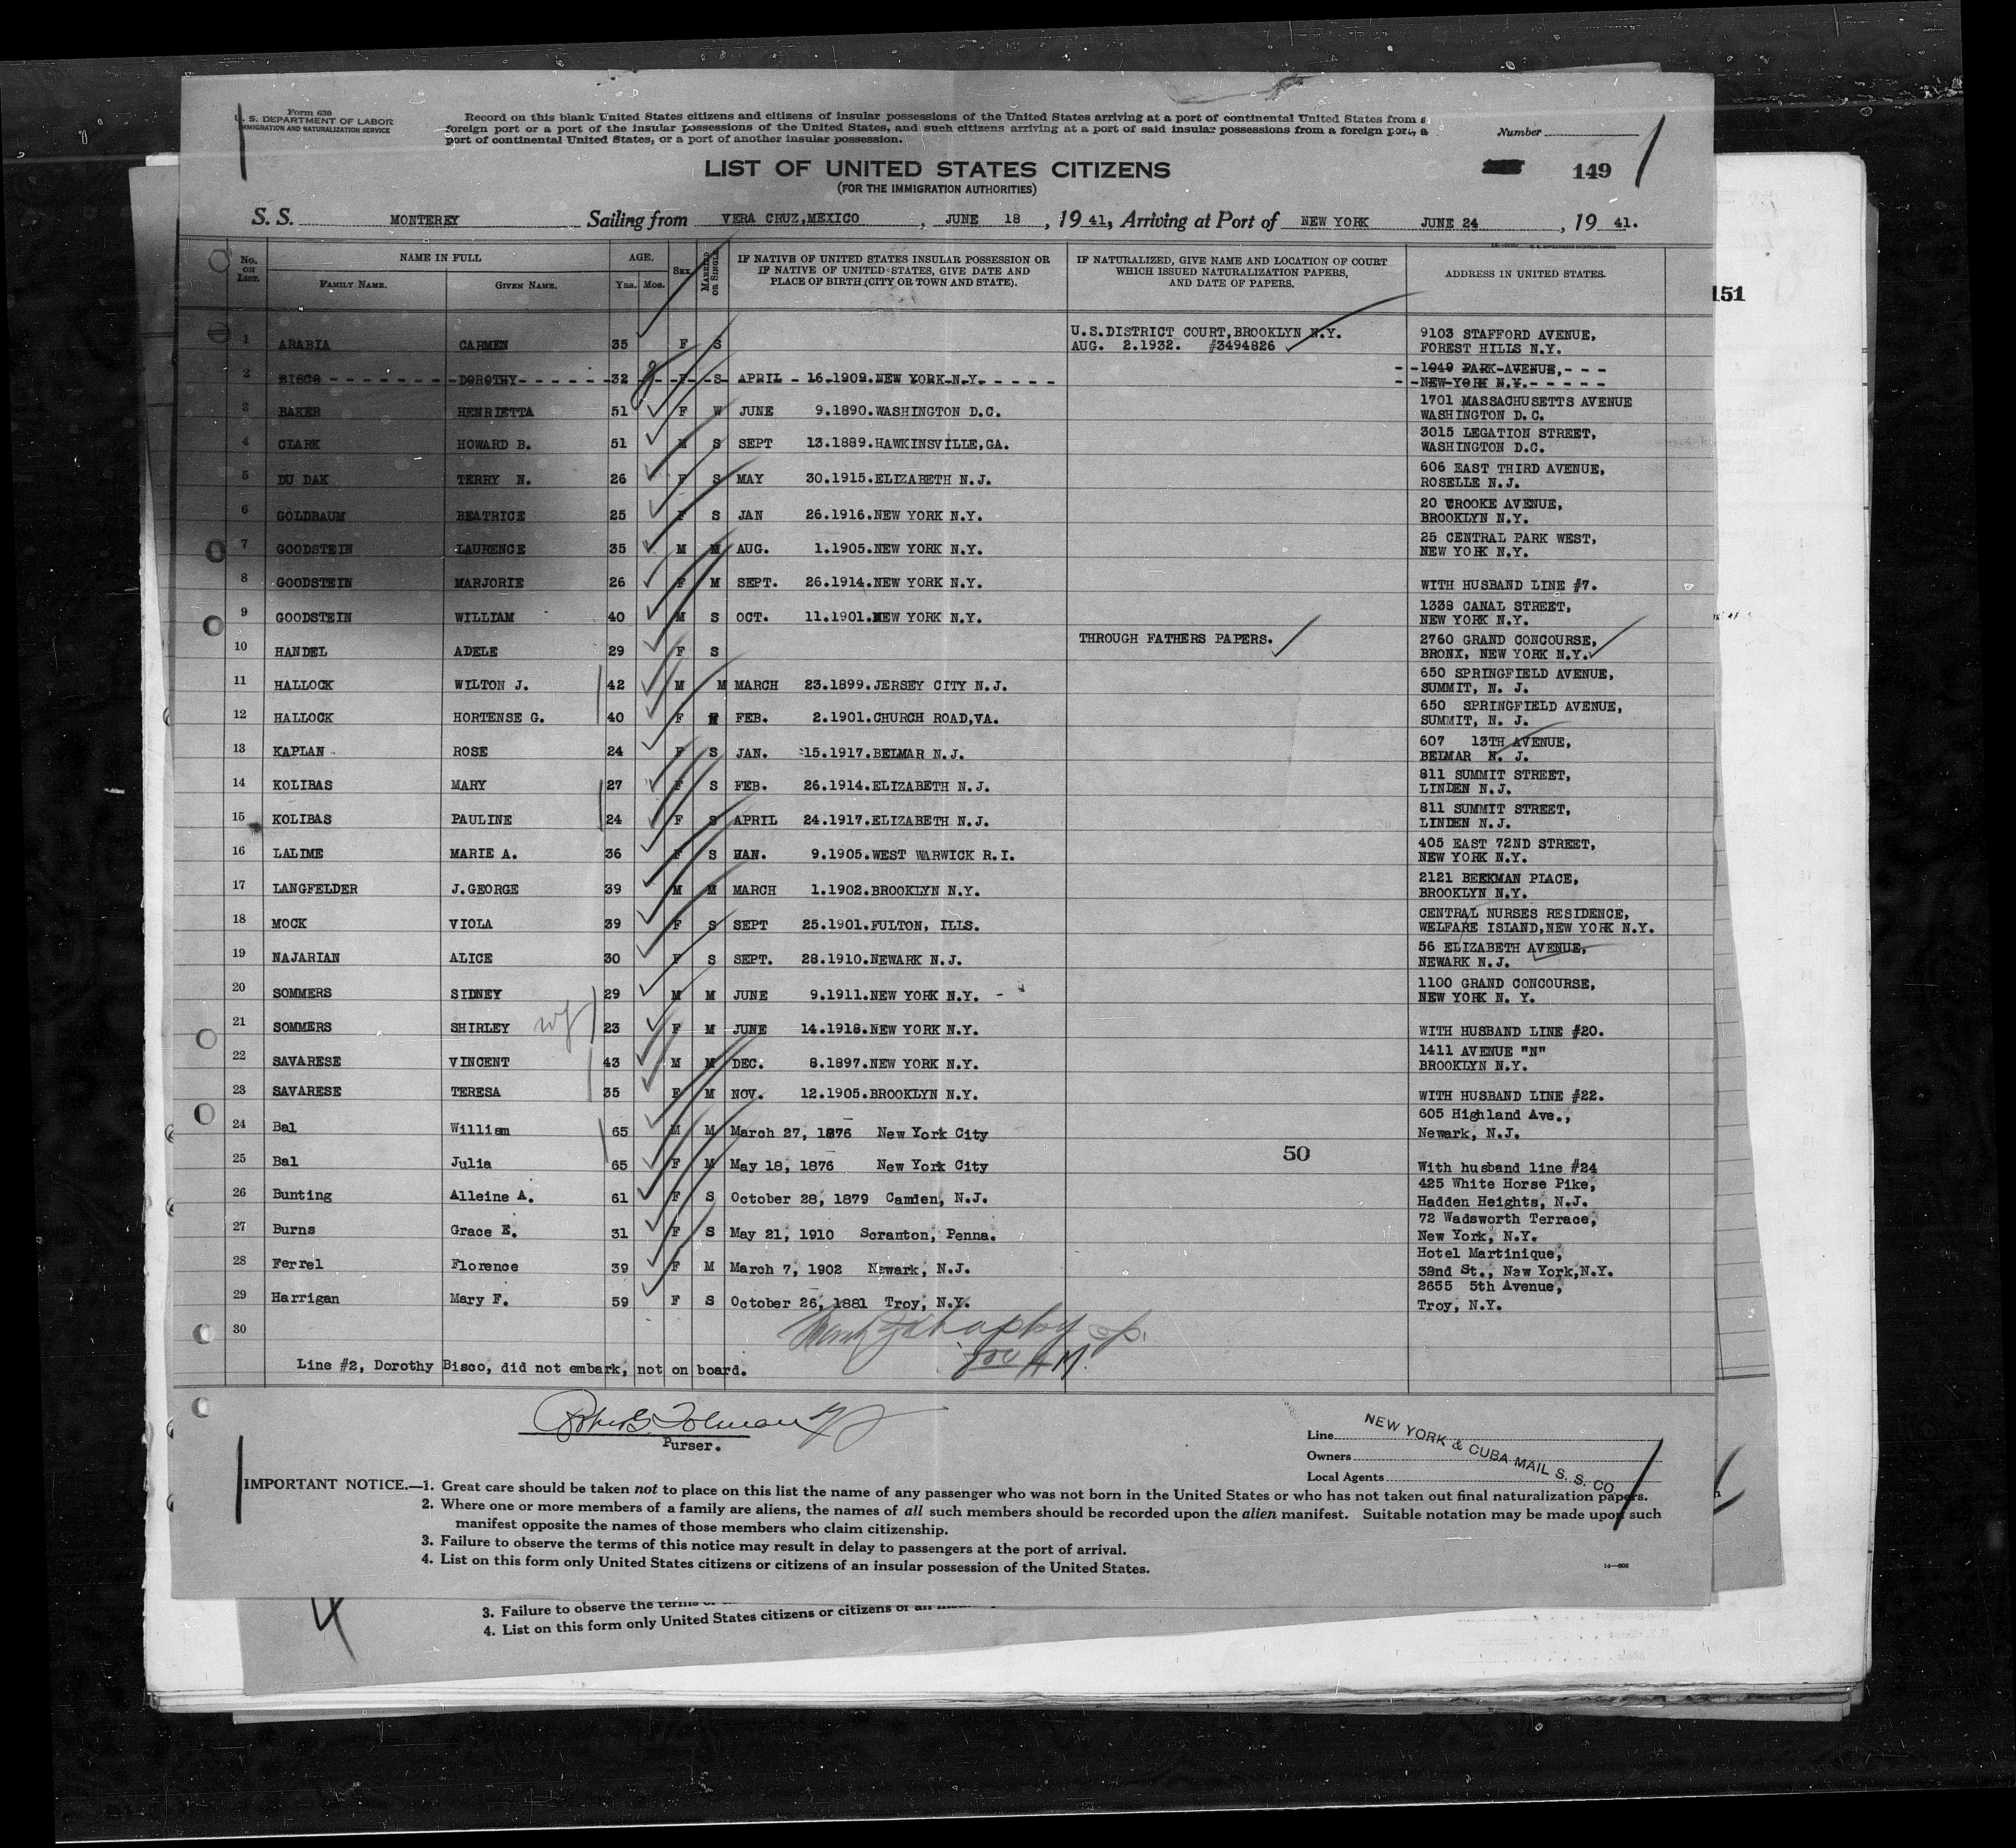 Form 630
U. S. DEPARTMENT OF LABOR
IMMIGRATION AND NATURALIZATION SERVICE
Record on this blank United States citizens and citizens of insular possessions of the United States arriving at a port of continental United States from a
foreign port or a port of the insular possessions of the United States, and such citizens arriving at a port of said insular possessions from a foreign port, a
port of continental United States, or a port of another insular possession.
Number
LIST OF UNITED STATES CITIZENS
(FOR THE IMMIGRATION AUTHORITIES)
149
S. S. MONTEREY Sailing from VERA CRUZ, MEXICO, JUNE 18, 1941, Arriving at Port of NEW YORK JUNE 24, 1941.
No. ON LIST. NAME IN FULL AGE. SEX MARRIED OR SINGLE IF NATIVE OF UNITED STATES INSULAR POSSESSION OR IF NATIVE OF UNITED STATES, GIVE DATE AND PLACE OF BIRTH (CITY OR TOWN AND STATE). IF NATURALIZED, GIVE NAME AND LOCATION OF COURT WHICH ISSUED NATURALIZATION PAPERS, AND DATE OF PAPERS. ADDRESS IN UNITED STATES.
FAMILY NAME. GIVEN NAME. Yrs. Mos.
151
1 ARABIA CARMEN 35 F S U.S.DISTRICT COURT,BROOKLYN N.Y. AUG. 2.1932. #3494826 9103 STAFFORD AVENUE, FOREST HILLS N.Y.
2 BISCO DOROTHY 32 F S APRIL 16.1909.NEW YORK N.Y. 1049 PARK AVENUE, NEW YORK N.Y.
3 BAKER HENRIETTA 51 F W JUNE 9.1890.WASHINGTON D.C. 1701 MASSACHUSETTS AVENUE WASHINGTON D.C.
4 CLARK HOWARD B. 51 M S SEPT 13.1889.HAWKINSVILLE,GA. 3015 LEGATION STREET, WASHINGTON D.C.
5 DU DAK TERRY N. 26 F S MAY 30.1915.ELIZABETH N.J. 606 EAST THIRD AVENUE, ROSELLE N.J.
6 GOLDBAUM BEATRICE 25 F S JAN 26.1916.NEW YORK N.Y. 20 CROOKE AVENUE, BROOKLYN N.Y.
7 GOODSTEIN LAURENCE 35 M M AUG. 1.1905.NEW YORK N.Y. 25 CENTRAL PARK WEST, NEW YORK N.Y.
8 GOODSTEIN MARJORIE 26 F M SEPT. 26.1914.NEW YORK N.Y. WITH HUSBAND LINE #7.
9 GOODSTEIN WILLIAM 40 M S OCT. 11.1901.NEW YORK N.Y. 1338 CANAL STREET, NEW YORK N.Y.
10 HANDEL ADELE 29 F S THROUGH FATHERS PAPERS. 2760 GRAND CONCOURSE, BRONX, NEW YORK N.Y.
11 HALLOCK WILTON J. 42 M M MARCH 23.1899.JERSEY CITY N.J. 650 SPRINGFIELD AVENUE, SUMMIT, N. J.
12 HALLOCK HORTENSE G. 40 F M FEB. 2.1901.CHURCH ROAD,VA. 650 SPRINGFIELD AVENUE, SUMMIT, N. J.
13 KAPLAN ROSE 24 F S JAN. 15.1917.BELMAR N.J. 607 13TH AVENUE, BELMAR N. J.
14 KOLIBAS MARY 27 F S FEB. 26.1914.ELIZABETH N.J. 811 SUMMIT STREET, LINDEN N.J.
15 KOLIBAS PAULINE 24 F S APRIL 24.1917.ELIZABETH N.J. 811 SUMMIT STREET, LINDEN N.J.
16 LALIME MARIE A. 36 F S HAN. 9.1905.WEST WARWICK R.I. 405 EAST 72ND STREET, NEW YORK N.Y.
17 LANGFELDER J.GEORGE 39 M M MARCH 1.1902.BROOKLYN N.Y. 2121 BEEKMAN PLACE, BROOKLYN N.Y.
18 MOCK VIOLA 39 F S SEPT 25.1901.FULTON, ILLS. CENTRAL NURSES RESIDENCE, WELFARE ISLAND,NEW YORK N.Y.
19 NAJARIAN ALICE 30 F S SEPT. 28.1910.NEWARK N.J. 56 ELIZABETH AVENUE, NEWARK N.J.
20 SOMMERS SIDNEY 29 M M JUNE 9.1911.NEW YORK N.Y. 1100 GRAND CONCOURSE, NEW YORK N. Y.
21 SOMMERS SHIRLEY wf 23 F M JUNE 14.1918.NEW YORK N.Y. WITH HUSBAND LINE #20.
22 SAVARESE VINCENT 43 M M DEC. 8.1897.NEW YORK N.Y. 1411 AVENUE "N" BROOKLYN N.Y.
23 SAVARESE TERESA 35 F M NOV. 12.1905.BROOKLYN N.Y. WITH HUSBAND LINE #22.
24 Bal William 65 M M March 27, 1876 New York City 605 Highland Ave., Newark, N.J.
25 Bal Julia 65 F M May 18, 1876 New York City 50 With husband line #24
26 Bunting Alleine A. 61 F S October 28, 1879 Camden, N.J. 425 White Horse Pike, Hadden Heights, N.J.
27 Burns Grace E. 31 F S May 21, 1910 Scranton, Penna. 72 Wadsworth Terrace, New York, N.Y.
28 Ferrel Florence 39 F M March 7, 1902 Newark, N.J. Hotel Martinique, 32nd St., New York,N.Y.
29 Harrigan Mary F. 59 F S October 26, 1881 Troy, N.Y. 2655 5th Avenue, Troy, N.Y.
30
Line #2, Dorothy Bisco, did not embark, not on board.
Purser.
Line
Owners
Local Agents
NEW YORK & CUBA MAIL S. S. CO.
IMPORTANT NOTICE.—1. Great care should be taken not to place on this list the name of any passenger who was not born in the United States or who has not taken out final naturalization papers.
2. Where one or more members of a family are aliens, the names of all such members should be recorded upon the alien manifest. Suitable notation may be made upon such
manifest opposite the names of those members who claim citizenship.
3. Failure to observe the terms of this notice may result in delay to passengers at the port of arrival.
4. List on this form only United States citizens or citizens of an insular possession of the United States.
14—608
3. Failure to observe the terms
4. List on this form only United States citizens or citizens of an